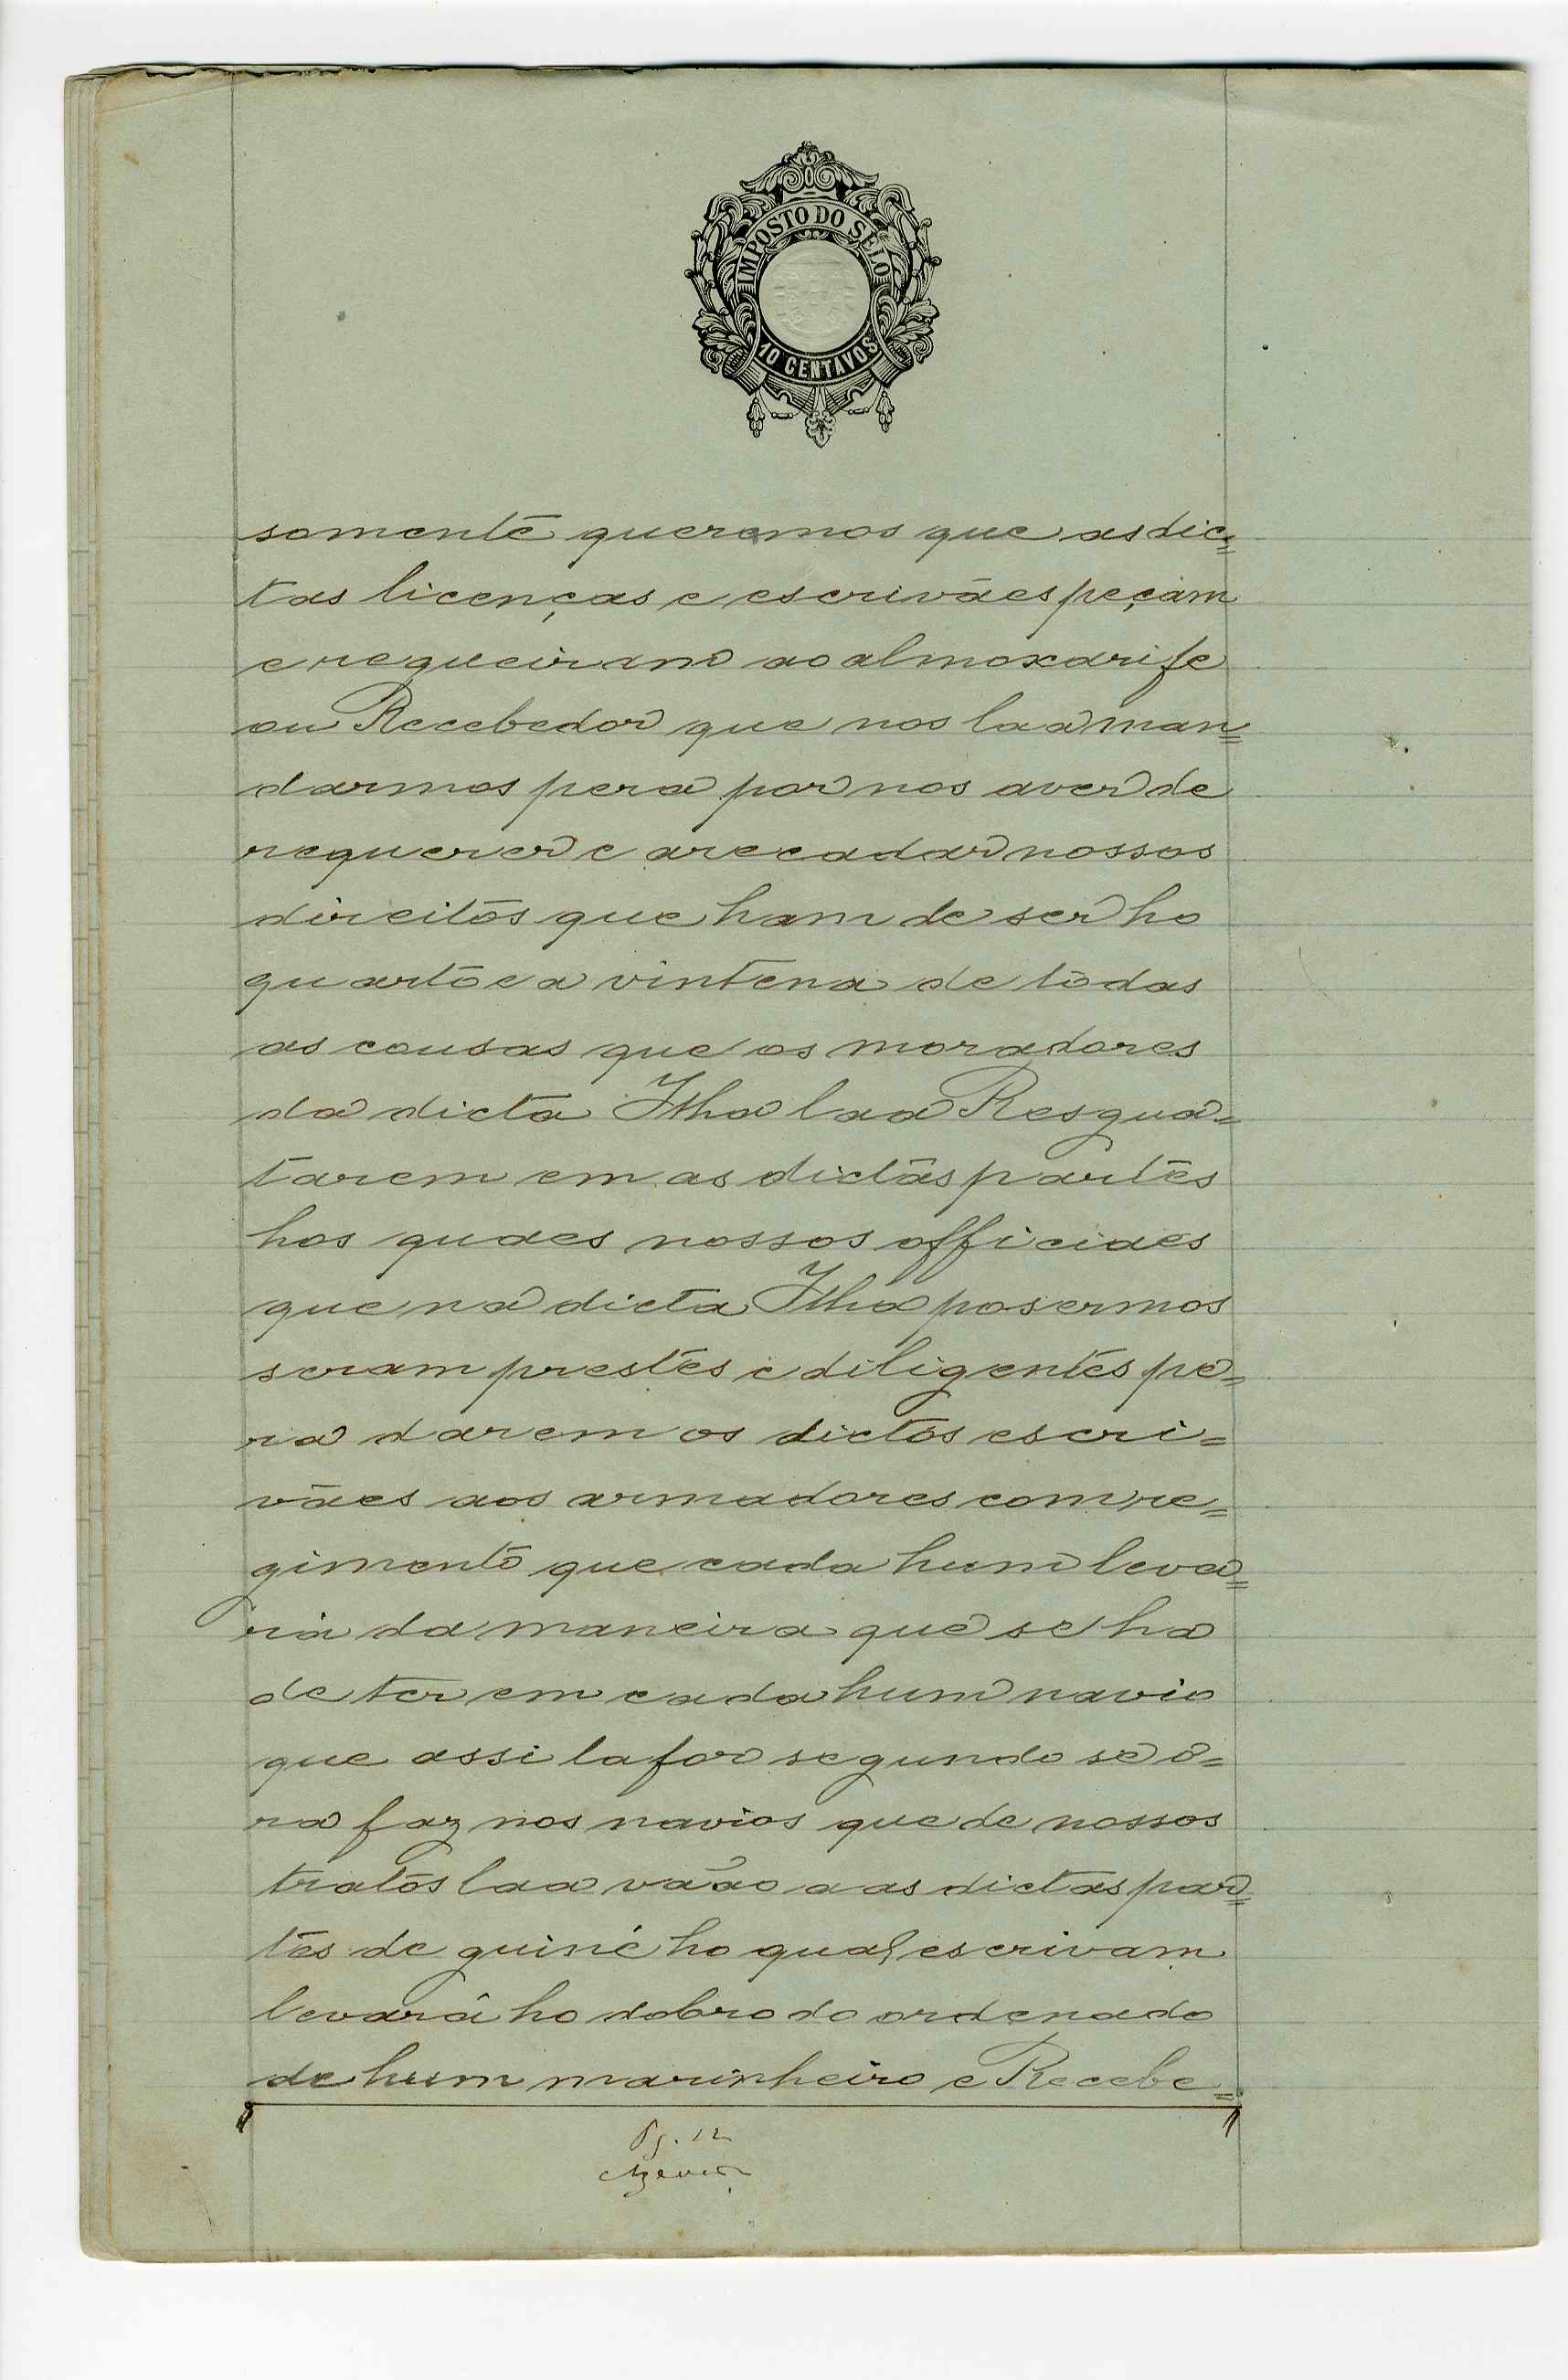 IMPOSTO DO SELO
10 CENTAVOS
somente queremos que as dic=
tas licenças e escrivães peçam
e requeiram ao almoxarife
ou Recebedor que nos laa man=
darmos pera por nos aver de
requerer e arecadar nossos
direitos que ham de ser ho
quarto e a vintena de todas
as cousas que os moradores
da dicta Ilha laa Resgua=
tarem em as dictas partes
hos quaes nossos officiaes
que na dicta Ilha posermos
seram prestes e diligentes pe=
ra darem os dictos escri=
vães aos armadores com re=
gimento que cada hum leva=
rá da maneira que se ha
de ter em cada hum navio
que assi la for segundo se o=
ra faz nos navios que de nossos
tratos laa vãao a as dictas par=
tes de guiné ho qual escrivam
levará ho dobro do ordenado
de hum marinheiro e Recebe=
Pg. 12